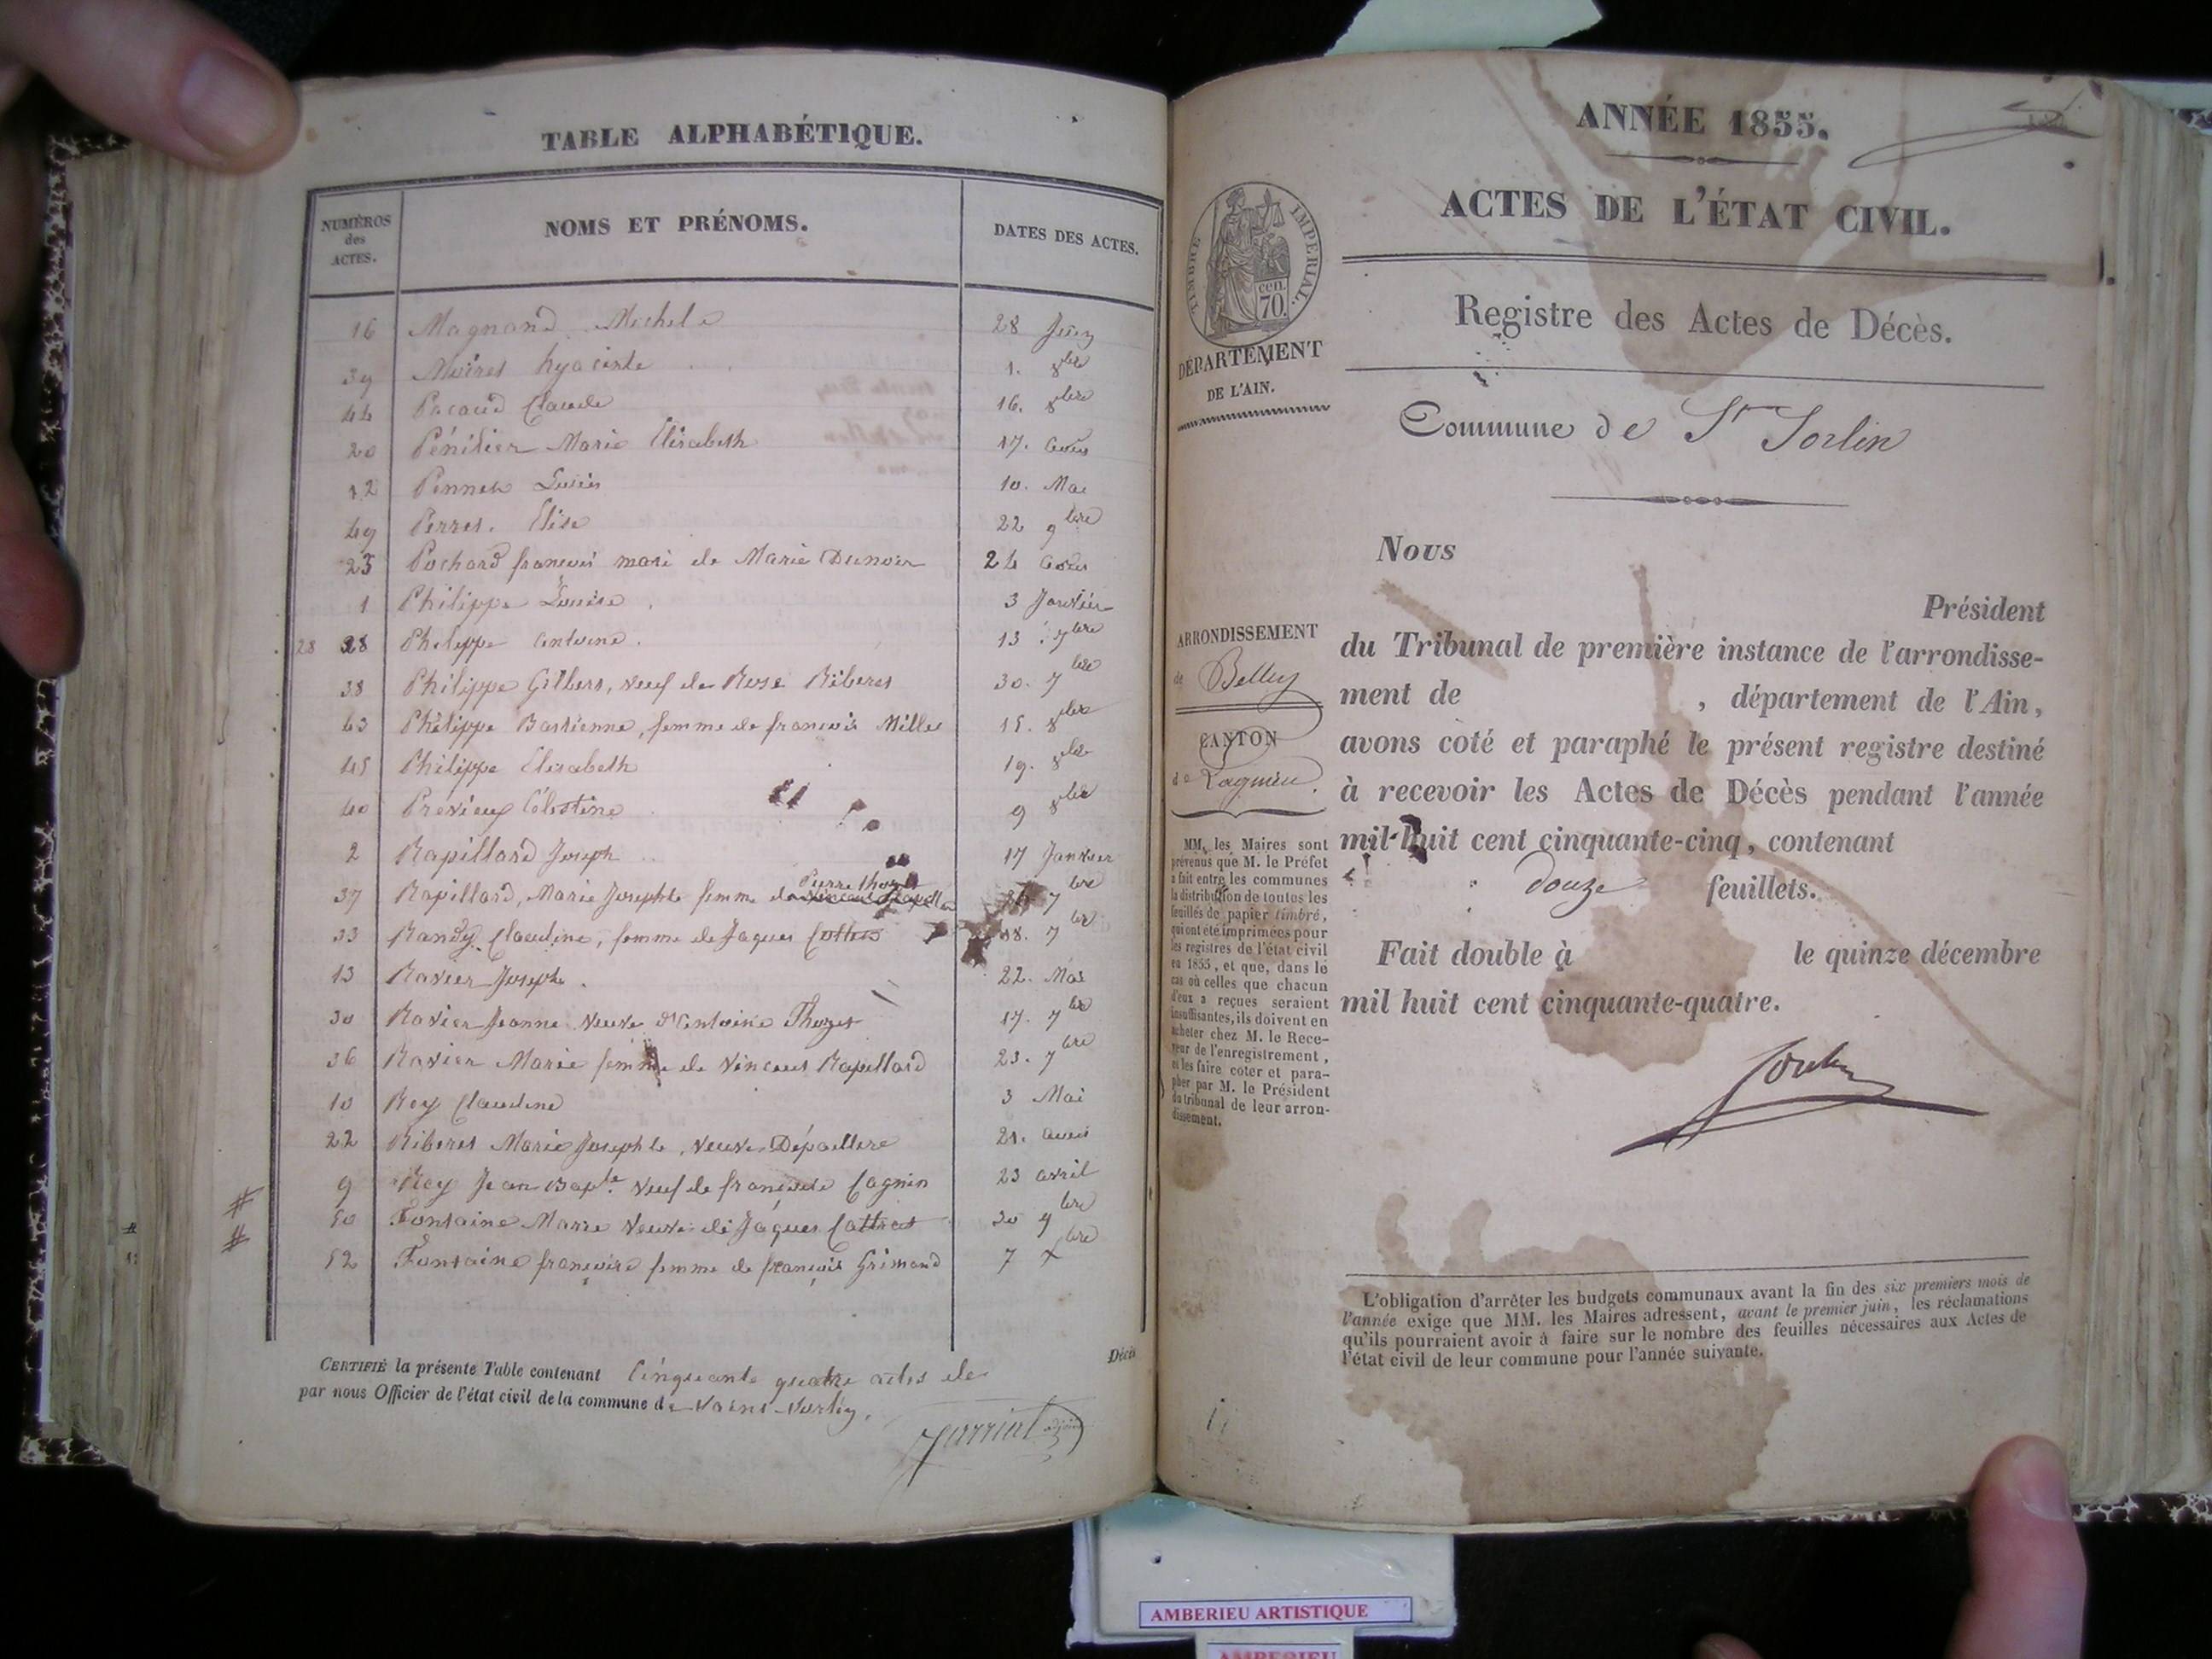 TABLE ALPHABÉTIQUE.
NUMÉROS
des
ACTES.
NOMS ET PRÉNOMS.
DATES DES ACTES.
16 Magnand Michel 28
39 hyacinte 1. 8bre
44 Pacaud Claude 16. 8bre
20 Pénitier Marie Elisabeth 17. aout
12 10. Mai
49 Perret Elise 22 9bre
23 Pochard françois mari de Marie Dunoier 24 aout
1 Philippe Louise 3 Janvier
28 28 Philippe antoine. 13 7bre
38 Philippe Gilbert, veuf de Rose Riberet 30. 7bre
43 Philippe Bastienne, femme de françois Millet 15. 8bre
45 Philippe Elisabeth 19. 8bre
40 Prévieux Célestine 9 8bre
2 Rapillard Joseph 17 Janvier
Pierre thozet
37 Rapillard, Marie Josephte femme de 7bre
33 Randy Claudine, femme de Jaques Cottret 18. 7bre
13 Ravier Joseph. 22. Mai
30 Ravier Jeanne veuve d'antoine Thozet 17. 7bre
36 Ravier Marie femme de Vincent Rapillard 23. 7bre
10 Rey Claudine 3 Mai
22 Riberet Marie Josephte, veuve Dépaillere 21. aout
9 Rey Jean Bapte. veuf de françoise Cagnin 23 avril
# 50 Fontaine Marie veuve de Jaques Cattret 30 9bre
# 52 Fontaine françoise femme de françois Grimand 7 Xbre
CERTIFIÉ la présente Table contenant Cinquante quatre actes de Décès
par nous Officier de l'état civil de la commune de Saint-Sorlin.
Jarriat adjoint
ANNÉE 1855.
ACTES DE L'ÉTAT CIVIL.
TIMBRE IMPÉRIAL.
70 cen.
DÉPARTEMENT
DE L'AIN.
Registre des Actes de Décès.
Commune de St Sorlin
Nous
Président
du Tribunal de première instance de l'arrondisse-
ment de , département de l'Ain,
avons coté et paraphé le présent registre destiné
à recevoir les Actes de Décès pendant l'année
mil-huit cent cinquante-cinq, contenant
douze feuillets.
Fait double à le quinze décembre
mil huit cent cinquante-quatre.
ARRONDISSEMENT
de Belley
CANTON
de Lagnieu.
MM. les Maires sont
prévenus que M. le Préfet
a fait entre les communes
la distribution de toutes les
feuilles de papier timbré,
qui ont été imprimées pour
les registres de l'état civil
en 1855, et que, dans le
cas où celles que chacun
d'eux a reçues seraient
insuffisantes, ils doivent en
acheter chez M. le Rece-
veur de l'enregistrement,
et les faire coter et para-
pher par M. le Président
du tribunal de leur arron-
dissement.
L'obligation d'arrêter les budgets communaux avant la fin des six premiers mois de
l'année exige que MM. les Maires adressent, avant le premier juin, les réclamations
qu'ils pourraient avoir à faire sur le nombre des feuilles nécessaires aux Actes de
l'état civil de leur commune pour l'année suivante.
AMBERIEU ARTISTIQUE
AMBERIEU